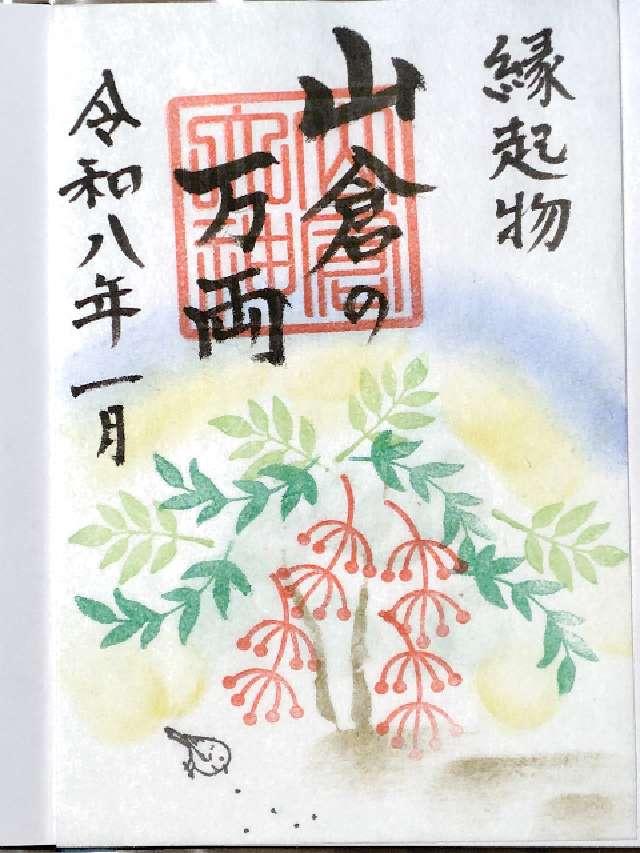 縁起物
山倉の
万両
令和八年一月